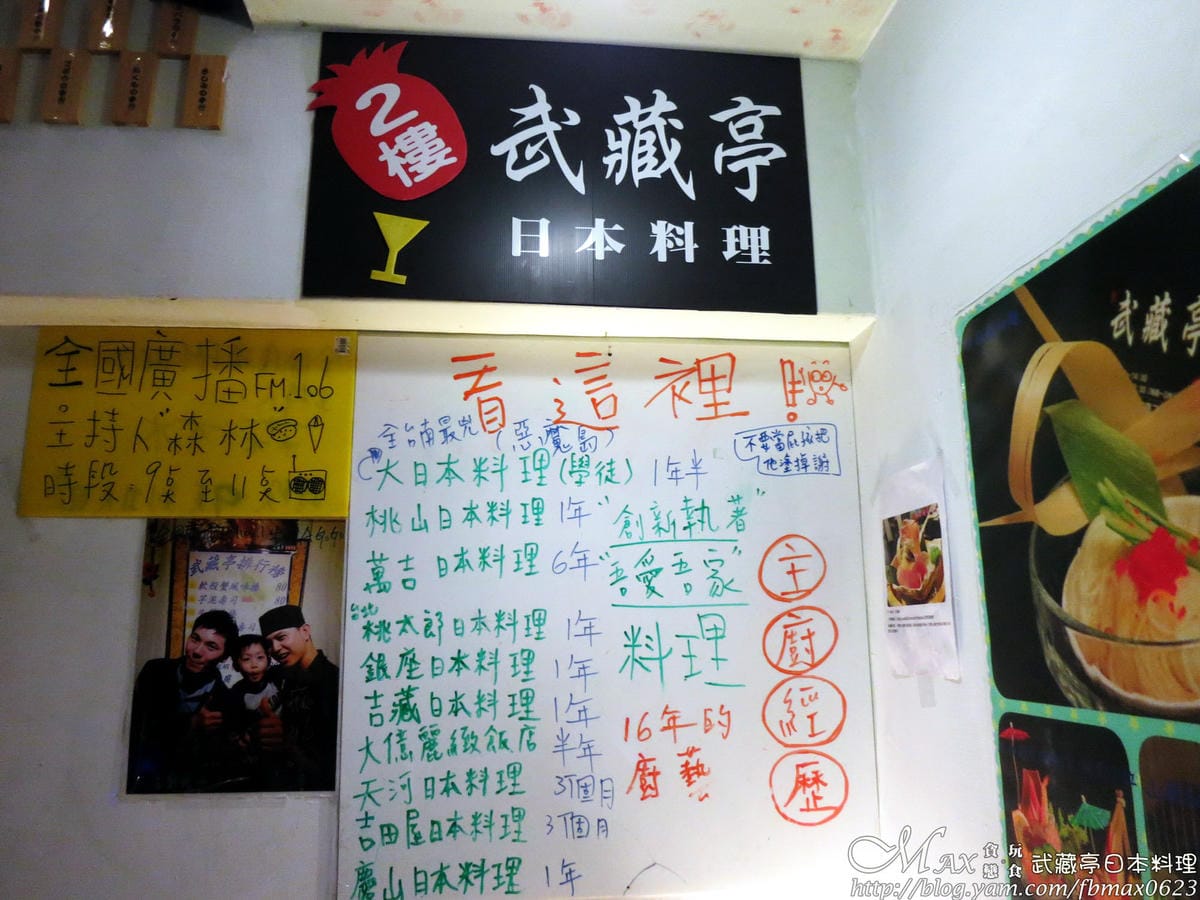 2樓
武藏亭
日本料理
全國廣播FM.106
主持人"森林"
時段:9點至11點
看這裡!
全台南最兇(惡魔島)
不要當屁孩把
他塗掉謝
大日本料理(學徒) 1年半
桃山日本料理 1年
"創新執著"
萬吉日本料理 6年
"吾愛吾家"
台北桃太郎日本料理 1年
料理
銀座日本料理 1年
吉藏日本料理 1年
16年的
廚藝
大億麗緻飯店 半年
天河日本料理 3個月
吉田屋日本料理 3個月
慶山日本料理 1年
主廚經歷
武藏亭排行榜
軟殼蟹風味捲 80
武藏亭
Max食戀玩食 武藏亭日本料理
http://blog.yam.com/fbmax0623